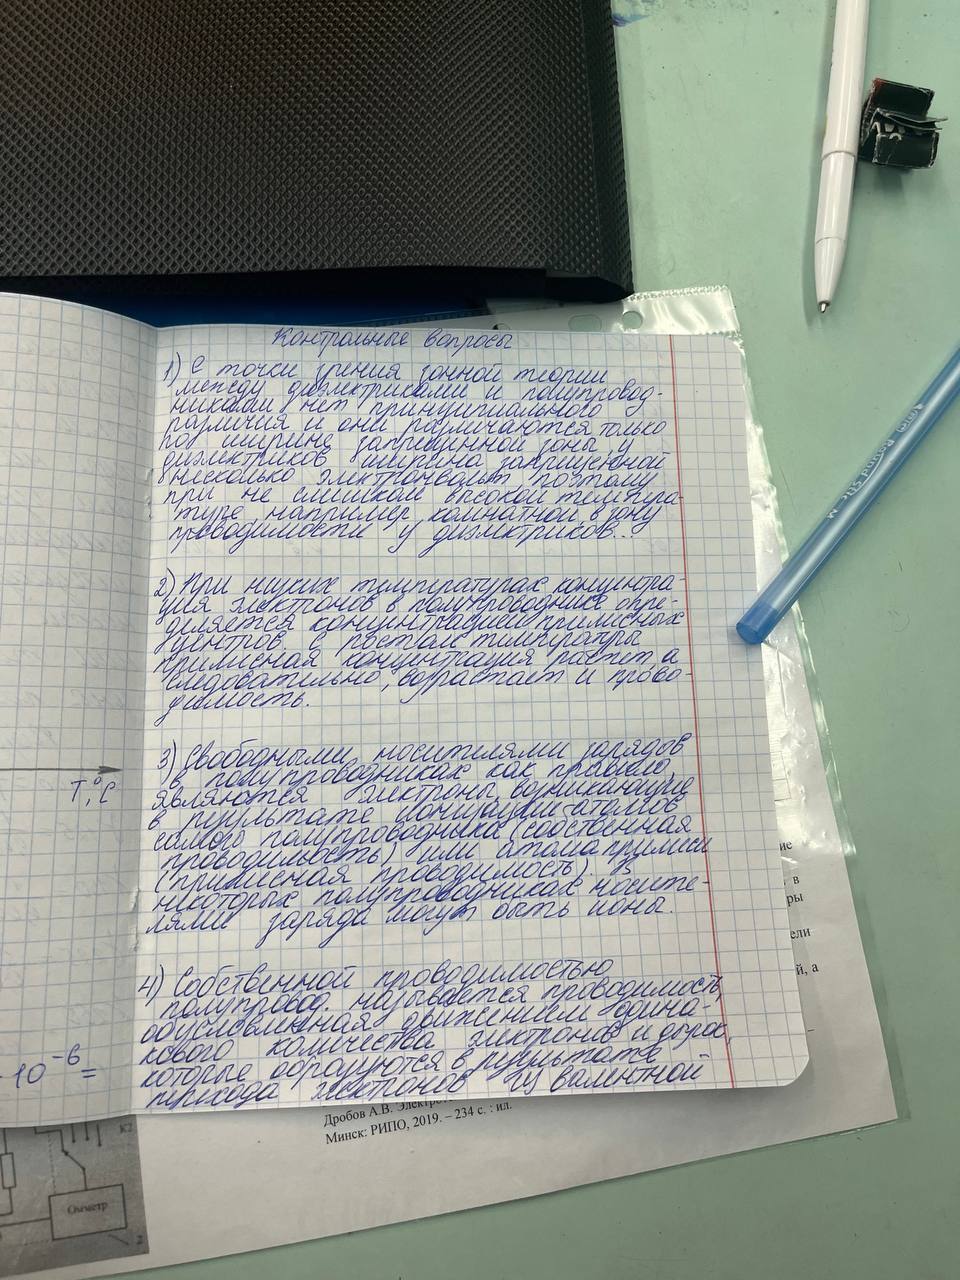 Контрольные вопросы
1) С точки зрения зонной теории
между диэлектриками и полупровод-
никами нет принципиального
различия и они различаются только
по ширине запрещенной зоны, у
диэлектриков ширина запрещенной
несколько электронвольт, поэтому
при не слишком высокой темпера-
туре например, комнатной, в зону
проводимости у диэлектриков...
2) При низких температурах концентра-
ция электронов в полупроводнике опре-
деляется концентрацией примесных
центров, с ростом температуры
примесная концентрация растет, а
следовательно, возрастает и прово-
димость.
3) Свободными носителями зарядов
в полупроводниках как правило,
являются электроны, возникающие
в результате ионизации атомов
самого полупроводника (собственная
проводимость) или атома примеси
(примесная проводимость). В
некоторых полупроводниках носите-
лями заряда могут быть ионы.
4) Собственной проводимостью
полупровод. называется проводимость,
обусловленная движением одина-
кового количества электронов и дырок,
которые образуются в результате
перехода электронов из валентной
T,°C
10⁻⁶=
ие
в
ры
ели
й, а
Дробов А.В.
Минск: РИПО, 2019. – 234 с. : ил.
К2
Омметр
2